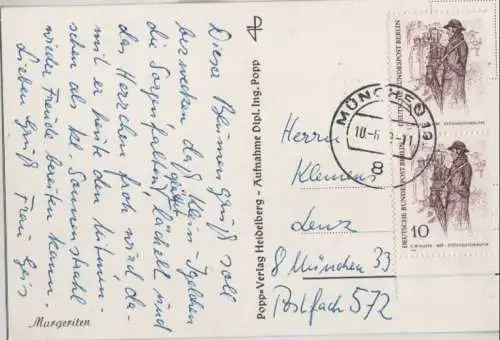 Dieser Blumengruß soll
bezwecken daß Klein-Igelchen
die Sorgenfalten glättet, lächelt und
das Herrchen froh wird, da-
mit er heute den Mitmen-
schen als kl. Sonnenstrahl
wieder Freude bereiten kann.
Lieben Gruß Frau
Margeriten
Popp-Verlag Heidelberg - Aufnahme Dipl. Ing. Popp
MÜNCHEN 19
10.-6
8
DEUTSCHE BUNDESPOST BERLIN
DEUTSCHE BUNDESPOST BERLIN
10
Herrn
Klemens
Lenz
8 München 33
Postfach 572